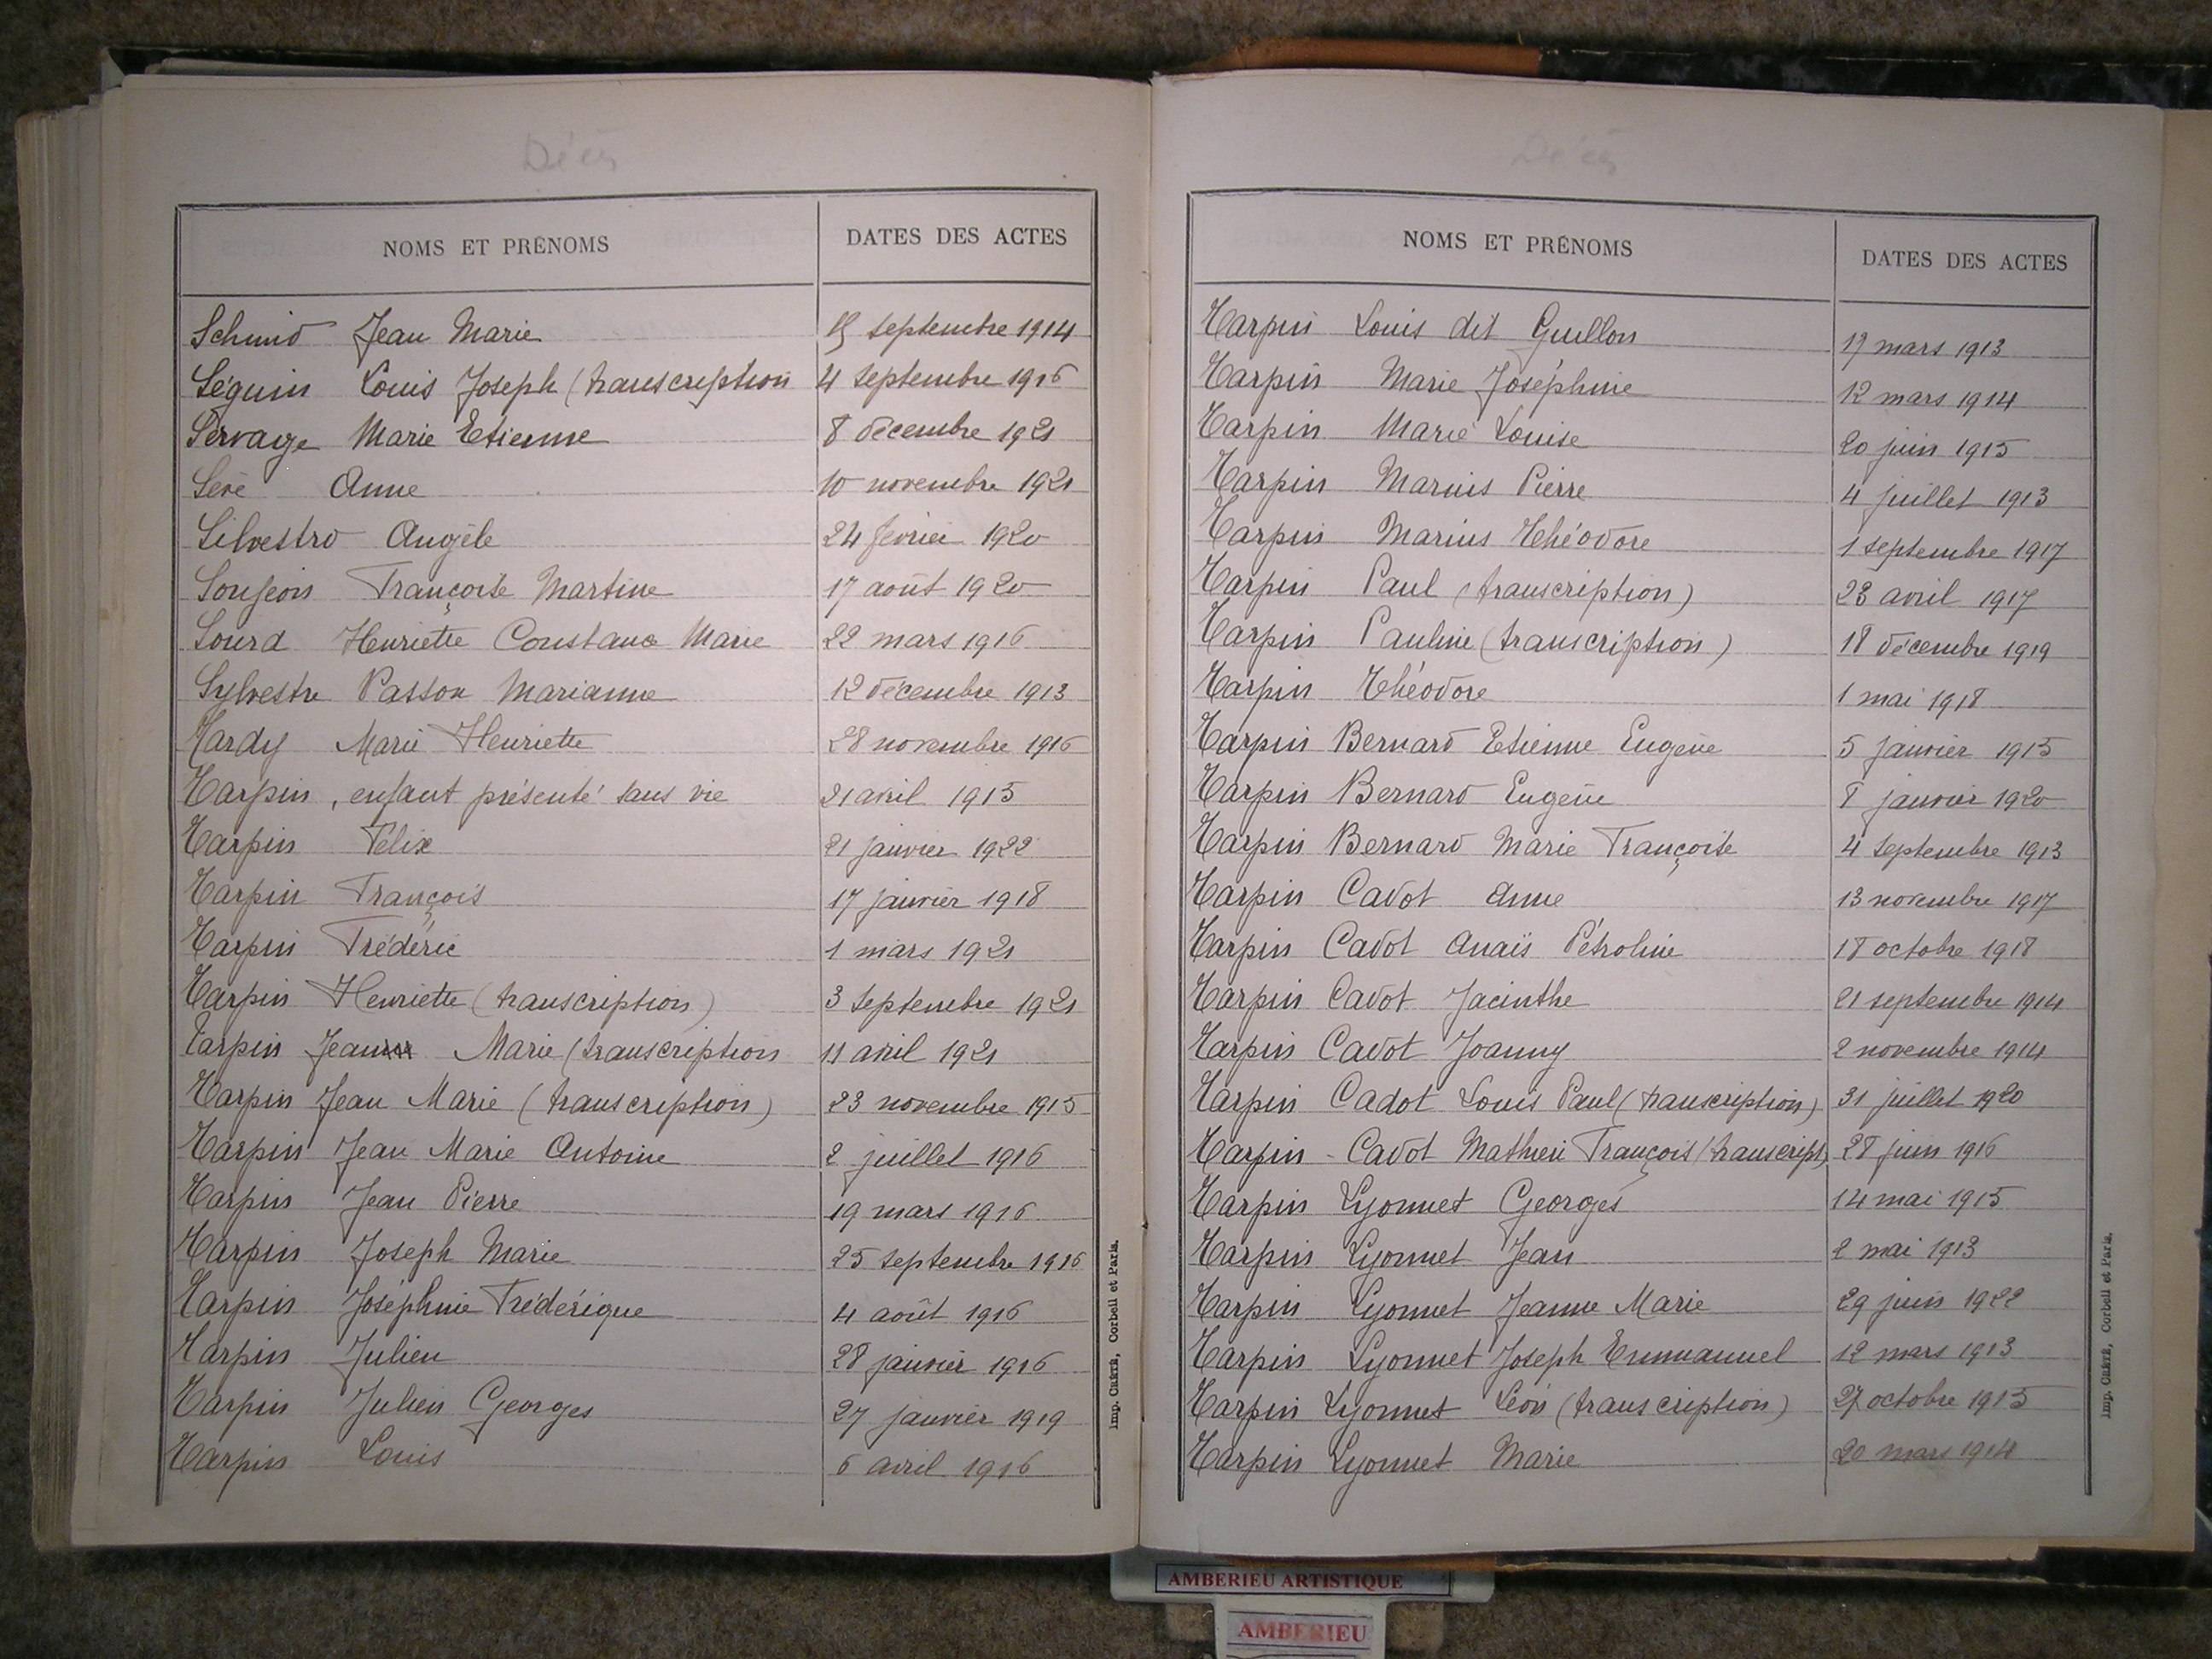 Décès
NOMS ET PRÉNOMS DATES DES ACTES
Schmid Jean Marie 15 septembre 1914
Séguin Louis Joseph (transcription 4 septembre 1916
Servage Marie Etienne 8 décembre 1921
Sève Anne 10 novembre 1921
Silvestro Angèle 24 février 1920
Songeon Françoise Martine 17 août 1920
Sourd Henriette Constance Marie 22 mars 1916
Sylvestre Passon Marianne 12 décembre 1913
Tardy Marie Henriette 28 novembre 1916
Tarpin, enfant présenté sans vie 21 avril 1915
Tarpin Félix 21 janvier 1922
Tarpin François 17 janvier 1918
Tarpin Frédéric 1 mars 1921
Tarpin Henriette (transcription) 3 septembre 1921
Tarpin Jean Marie (transcription 11 avril 1921
Tarpin Jean Marie (transcription) 23 novembre 1915
Tarpin Jean Marie Antoine 2 juillet 1916
Tarpin Jean Pierre 19 mars 1916
Tarpin Joseph Marie 25 septembre 1916
Tarpin Joséphine Frédérique 4 août 1916
Tarpin Julien 28 janvier 1916
Tarpin Julien Georges 27 janvier 1919
Tarpin Louis 6 avril 1916
Imp. CRÉTÉ, Corbeil et Paris.
Décès
NOMS ET PRÉNOMS DATES DES ACTES
Tarpin Louis dit Guillon 17 mars 1913
Tarpin Marie Joséphine 12 mars 1914
Tarpin Marie Louise 20 juin 1915
Tarpin Marius Pierre 4 juillet 1913
Tarpin Marius Théodore 1 septembre 1917
Tarpin Paul (transcription) 23 avril 1917
Tarpin Pauline (transcription) 18 décembre 1919
Tarpin Théodore 1 mai 1918
Tarpin Bernard Etienne Eugène 5 janvier 1915
Tarpin Bernard Eugène 8 janvier 1920
Tarpin Bernard Marie Françoise 4 septembre 1913
Tarpin Cadot Anne 13 novembre 1917
Tarpin Cadot Anaïs Pétroline 18 octobre 1918
Tarpin Cadot Jacinthe 21 septembre 1914
Tarpin Cadot Joanny 2 novembre 1914
Tarpin Cadot Louis Paul (transcription) 31 juillet 1920
Tarpin - Cadot Mathieu François (transcript) 28 juin 1916
Tarpin Lyonnet Georges 14 mai 1915
Tarpin Lyonnet Jean 2 mai 1913
Tarpin Lyonnet Jeanne Marie 29 juin 1922
Tarpin Lyonnet Joseph Emmanuel 12 mars 1913
Tarpin Lyonnet Léon (transcription) 27 octobre 1915
Tarpin Lyonnet Marie 20 mars 1914
Imp. CRÉTÉ, Corbeil et Paris.
AMBERIEU ARTISTIQUE
AMBERIEU